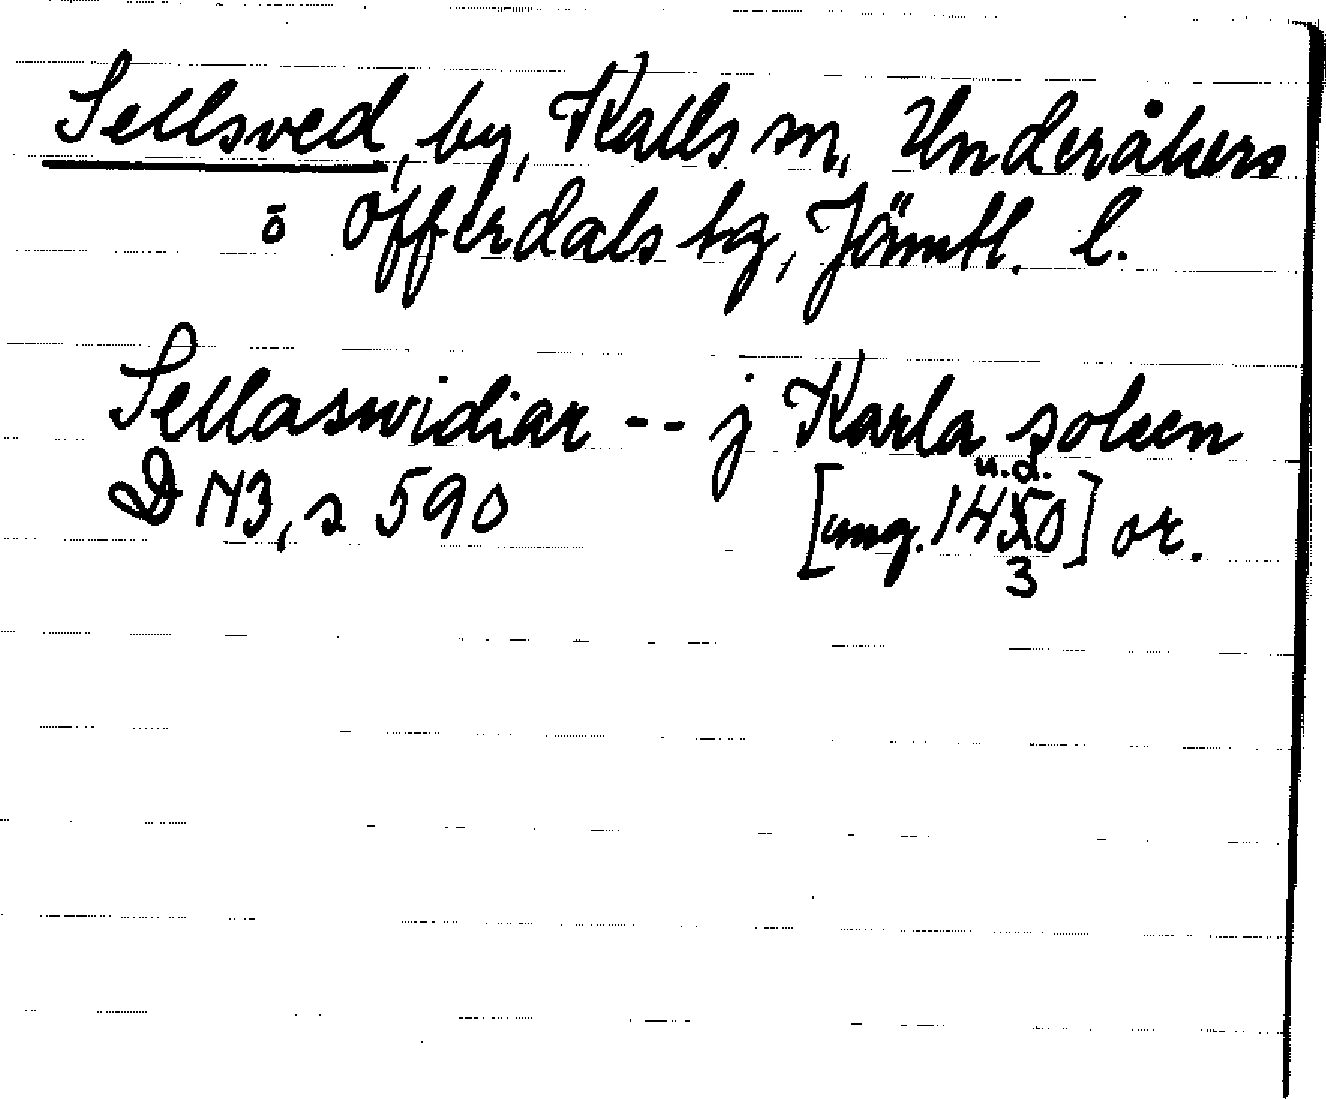 Sellsved, by, Kalls sn, Undersåkers
o Offerdals tg, Jämtl. l.
Sellaswidiar -- j Karla soken
DN 3, s 590 [omg. 1430] u.d. or.